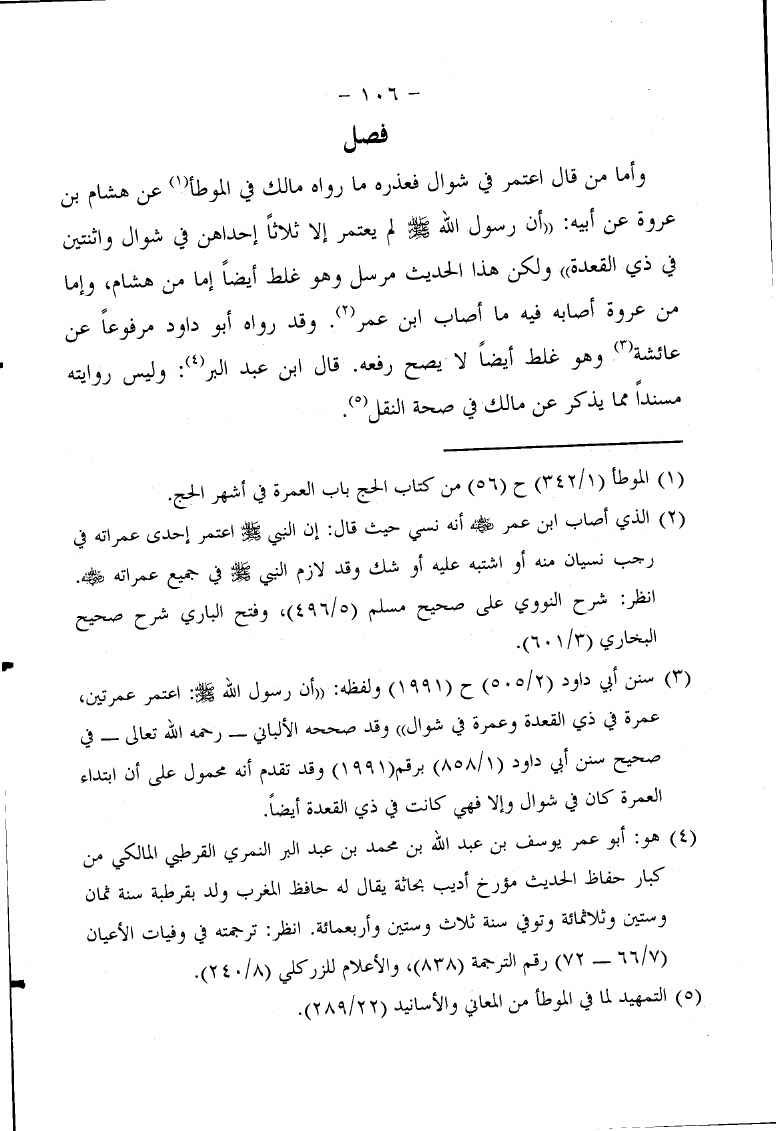 – ١٠٦ –
فصل
وأما من قال اعتمر في شوال فعذره ما رواه مالك في الموطأ(١) عن هشام بن
عروة عن أبيه: ((أن رسول الله ﷺ لم يعتمر إلا ثلاثاً إحداهن في شوال واثنتين
في ذي القعدة)) ولكن هذا الحديث مرسل وهو غلط أيضاً إما من هشام، وإما
من عروة أصابه فيه ما أصاب ابن عمر(٢). وقد رواه أبو داود مرفوعاً عن
عائشة(٣) وهو غلط أيضاً لا يصح رفعه. قال ابن عبد البر(٤): وليس روايته
مسنداً مما يذكر عن مالك في صحة النقل(٥).
(١) الموطأ (٣٤٢/١) ح (٥٦) من كتاب الحج باب العمرة في أشهر الحج.
(٢) الذي أصاب ابن عمر ﵁ أنه نسي حيث قال: إن النبي ﷺ اعتمر إحدى عمراته في
رجب نسيان منه أو اشتبه عليه أو شك وقد لازم النبي ﷺ في جميع عمراته ﵁.
انظر: شرح النووي على صحيح مسلم (٤٩٦/٥)، وفتح الباري شرح صحيح
البخاري (٦٠١/٣).
(٣) سنن أبي داود (٥٠٥/٢) ح (١٩٩١) ولفظه: ((أن رسول الله ﷺ: اعتمر عمرتين،
عمرة في ذي القعدة وعمرة في شوال)) وقد صححه الألباني – رحمه الله تعالى – في
صحيح سنن أبي داود (٨٥٨/١) برقم(١٩٩١) وقد تقدم أنه محمول على أن ابتداء
العمرة كان في شوال وإلا فهي كانت في ذي القعدة أيضاً.
(٤) هو: أبو عمر يوسف بن عبد الله بن محمد بن عبد البر النمري القرطبي المالكي من
كبار حفاظ الحديث مؤرخ أديب بحاثة يقال له حافظ المغرب ولد بقرطبة سنة ثمان
وستين وثلاثمائة وتوفي سنة ثلاث وستين وأربعمائة. انظر: ترجمته في وفيات الأعيان
(٦٦/٧ – ٧٢) رقم الترجمة (٨٣٨)، والأعلام للزركلي (٢٤٠/٨).
(٥) التمهيد لما في الموطأ من المعاني والأسانيد (٢٨٩/٢٢).